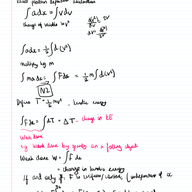 ∫ a dx = ∫ v dv
change of variable
∫ a dx = ½ ∫ d(v²)
multiply by m
∫ ma dx = ∫ F dx = ½ m ∫ d(v²)
N2
Define T = ½ mv², kinetic energy
∫ F dx = ∫ dT = ΔT - change in KE
Work done
e.g. Work done by gravity on a falling object
Work done W = ∫ F dx
= change in kinetic energy
If and only if, F is uniform/constant (independent of x